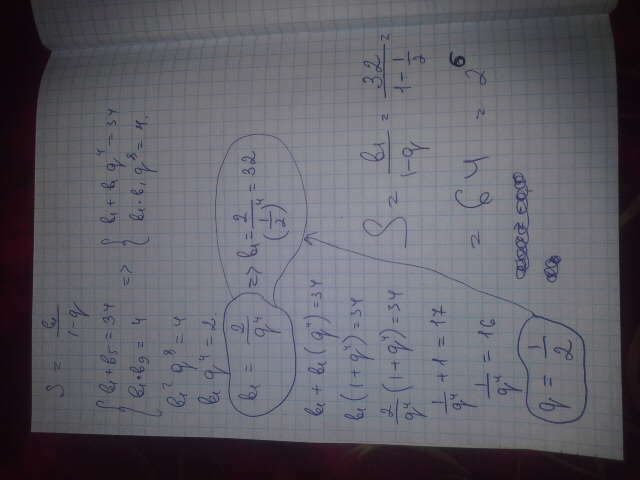 S = b₁/(1-q)
{ b₁+b₅=34 => { b₁+b₁q⁴=34
{ b₁·b₉=4 { b₁·b₁q⁸=4.
b₁²q⁸=4
b₁q⁴=2.
b₁ = 2/q⁴ => b₁ = 2/(1/2)⁴ = 32
b₁+b₁(q⁴)=34
b₁(1+q⁴)=34
2/q⁴(1+q⁴)=34
1/q⁴+1=17
1/q⁴=16
q = 1/2
S = b₁/(1-q) = 32/(1-1/2) =
= 64 = 2⁶